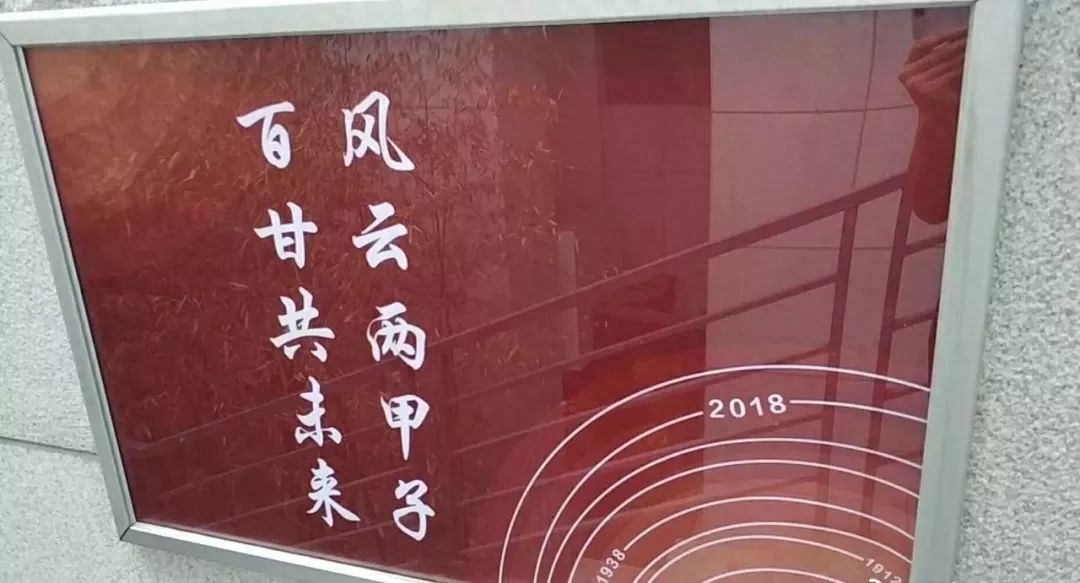 风云两甲子
百甘共未来
2018
1938
1912